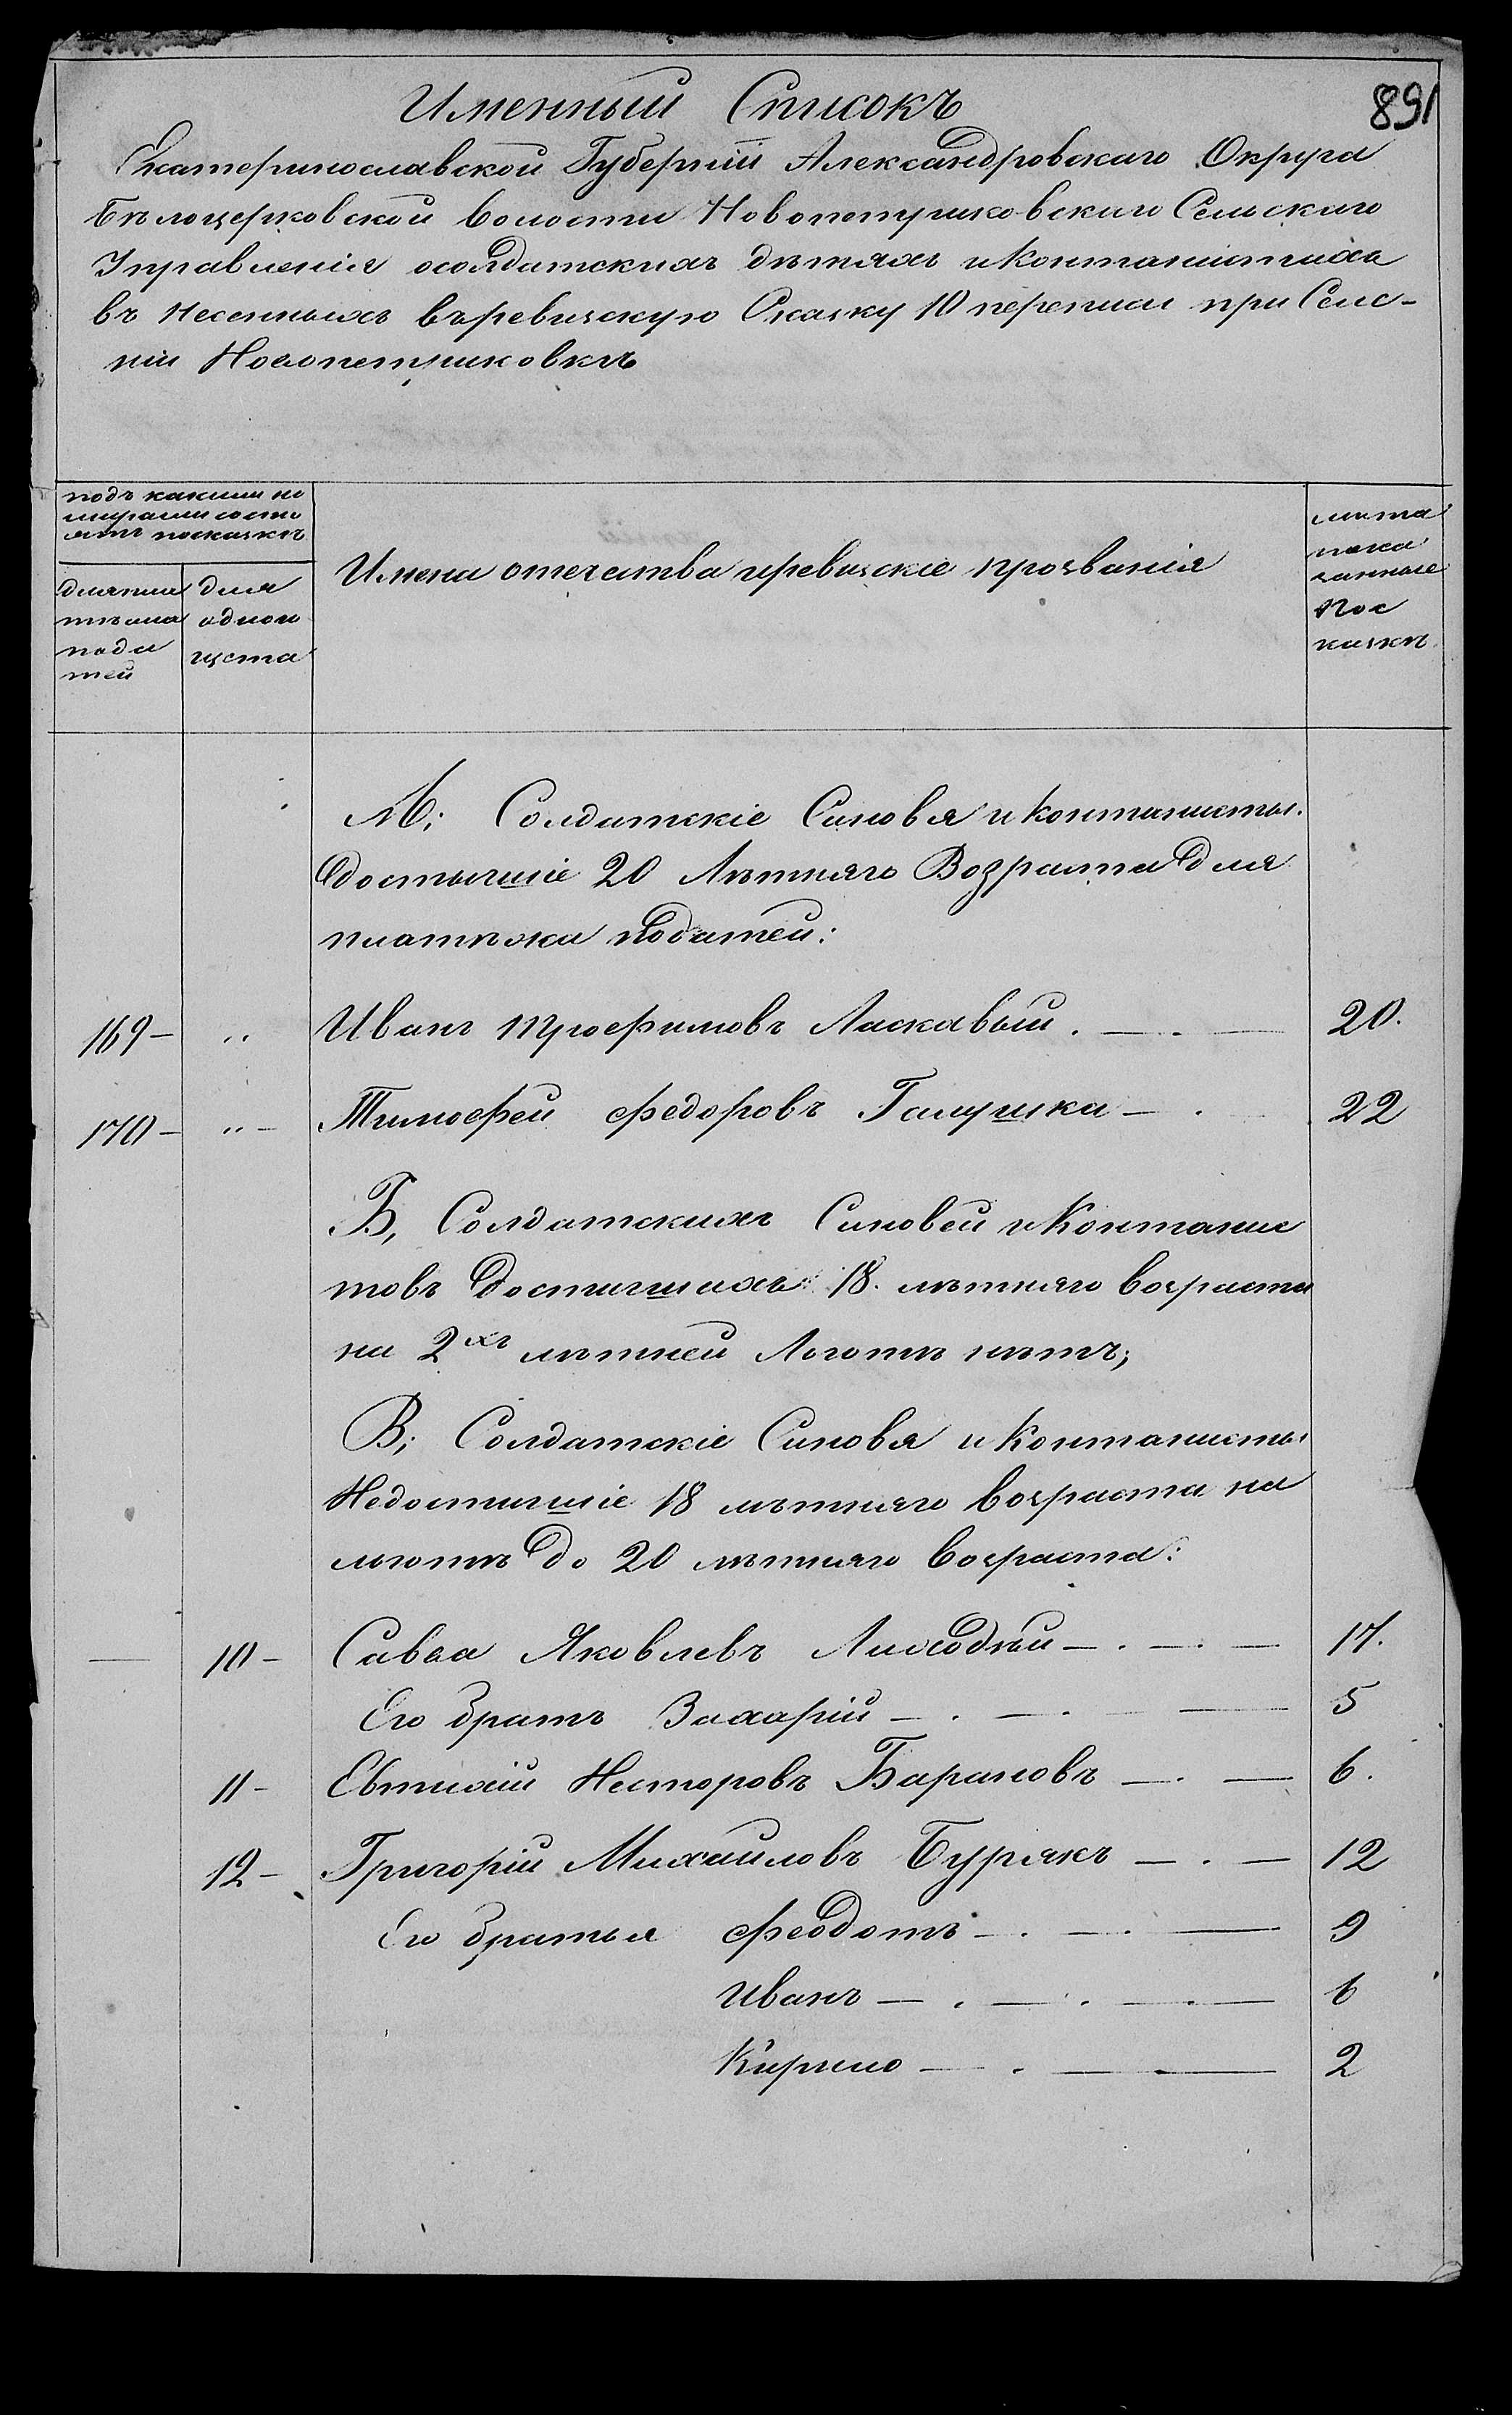 Именный Списокъ
891
Екатеринославской Губерніи Александровскаго Округа
Бѣлоцерковской волости Новопетриковскаго Сельскаго
Управленія осолдатскихъ дѣтяхъ икантанистахъ
въ Несенныхъ въревизскую Сказку 10 переписи при Селе-
ніи Новопетриковкѣ
подъ какими но
мирами состо
ятъ посказкѣ
дляпла
тѣжа
пода
тей
для
одного
щета
Имена отечества иревизскіе прозванія
лѣта
пока
занные
Пос
казкѣ
А; Солдатскіе Синовя иконтанисты.
Достыгшіе 20 Лѣтняго Возраста для
платѣжа податей:
169- „ Иванъ Трофимовъ Ласкавый . — . — 20.
170- „ - Тимофей Федоровъ Галушка — . 22
Б, Солдатскихъ Синовей иконтанис
товъ Достигшихъ 18. лѣтняго возраста
на 2хъ лѣтней Лготѣ нѣтъ;
В; Солдатскіе Синовя иконтанисты
Недостигшіе 18 лѣтняго возраста на
лготѣ до 20 лѣтняго возраста:
— 10- Савва Яковлевъ — . — . — 17.
Его братъ Захарій — . — . — 5
11- Евтихій Несторовъ Барановъ — . — 6.
12- Григорій Михайловъ Бурякъ — . — 12
Его братья Феодотъ — . — . — 9
Иванъ — . — . — . — 6
Кирило — . — . — 2